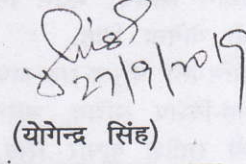 27/9/2019
(योगेन्द्र सिंह)